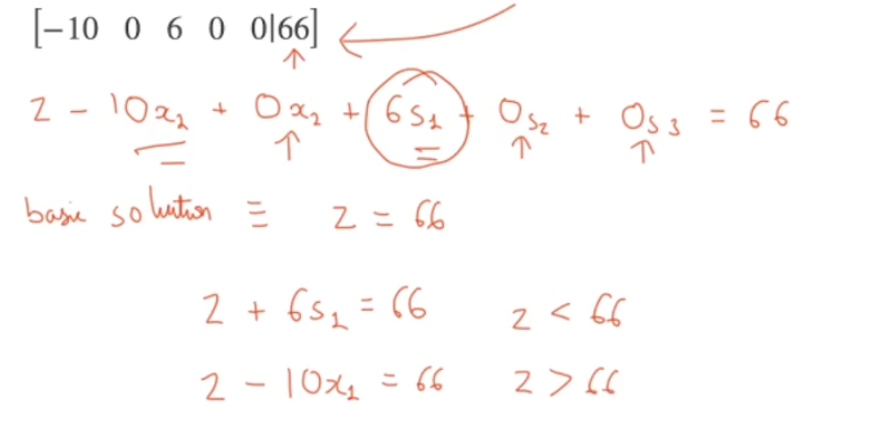 [−10 0 6 0 0|66]
z - 10x₁ + 0x₂ + 6s₁ + 0s₂ + 0s₃ = 66
basic solution ≡ z = 66
z + 6s₁ = 66 z < 66
z - 10x₁ = 66 z > 66